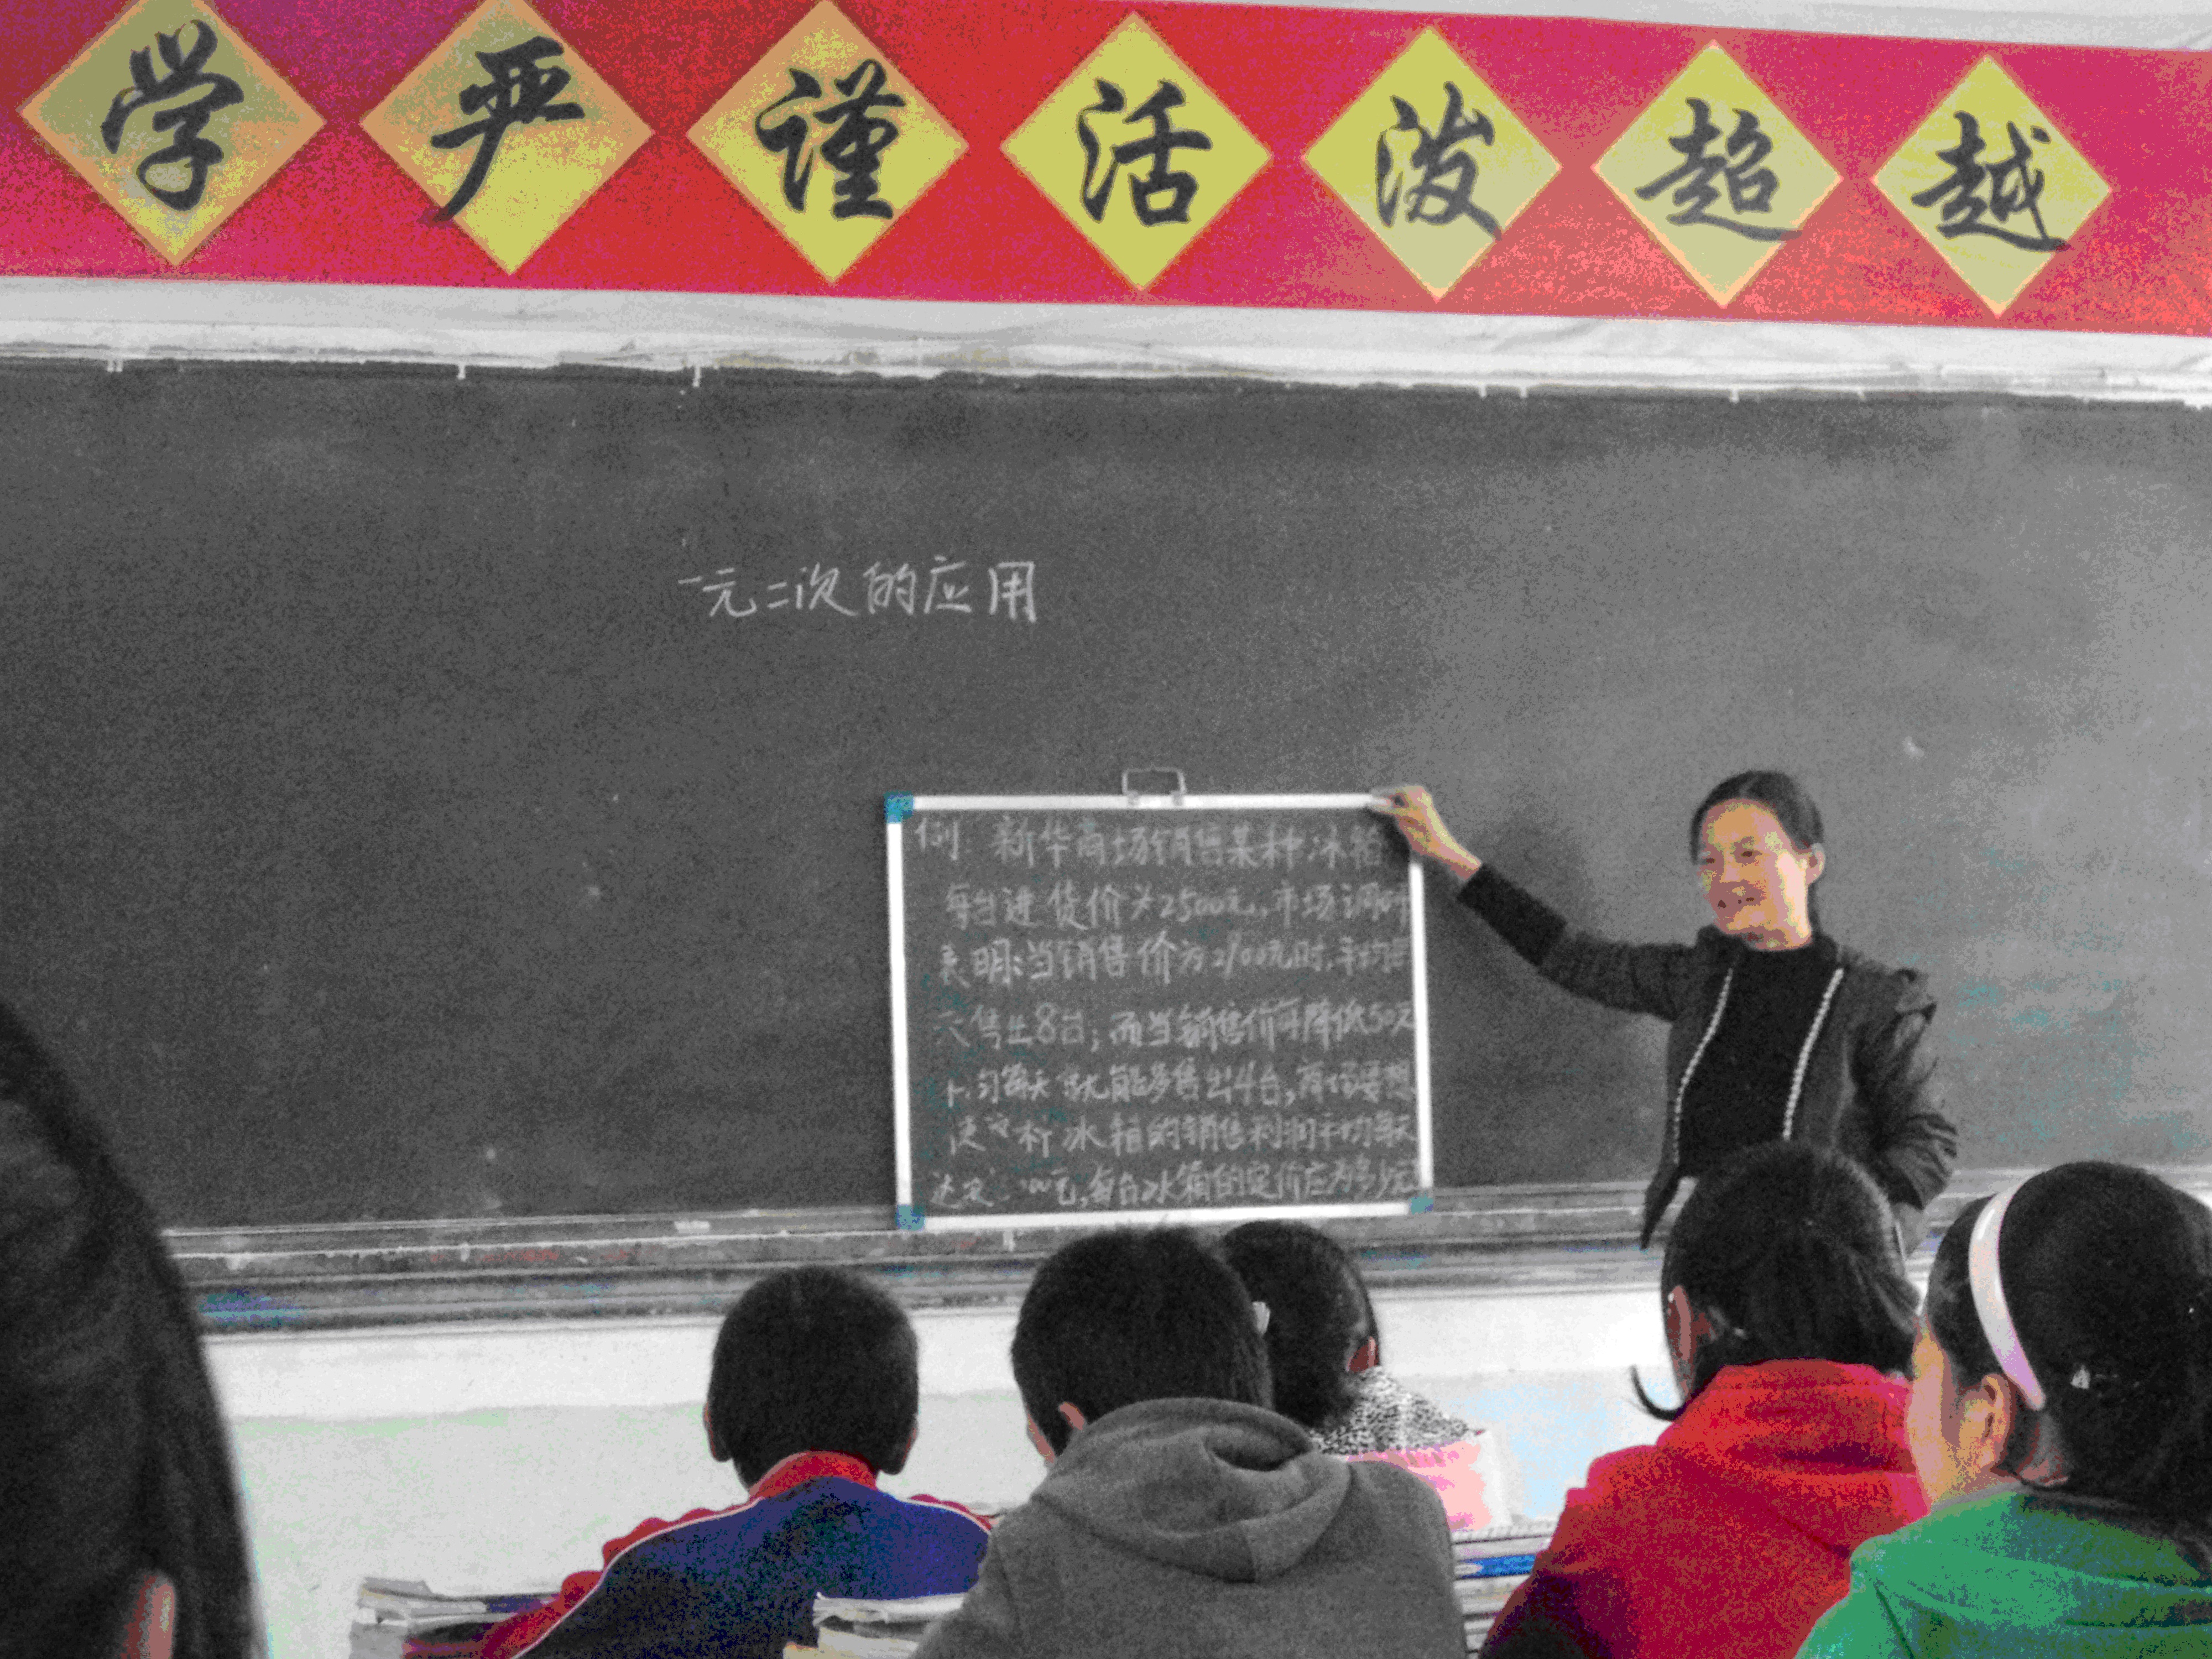 学 严 谨 活 泼 超 越
一元二次的应用
例: 新华商场销售某种冰箱
每台进货价为2500元,市场调研
表明:当销售价为2900元时,平均每
天售出8台;而当销售价每降低50元
均每天就能多售出4台,商场要想
使 冰箱的销售利润平均每天
达 元,每台冰箱的定价应为多少元